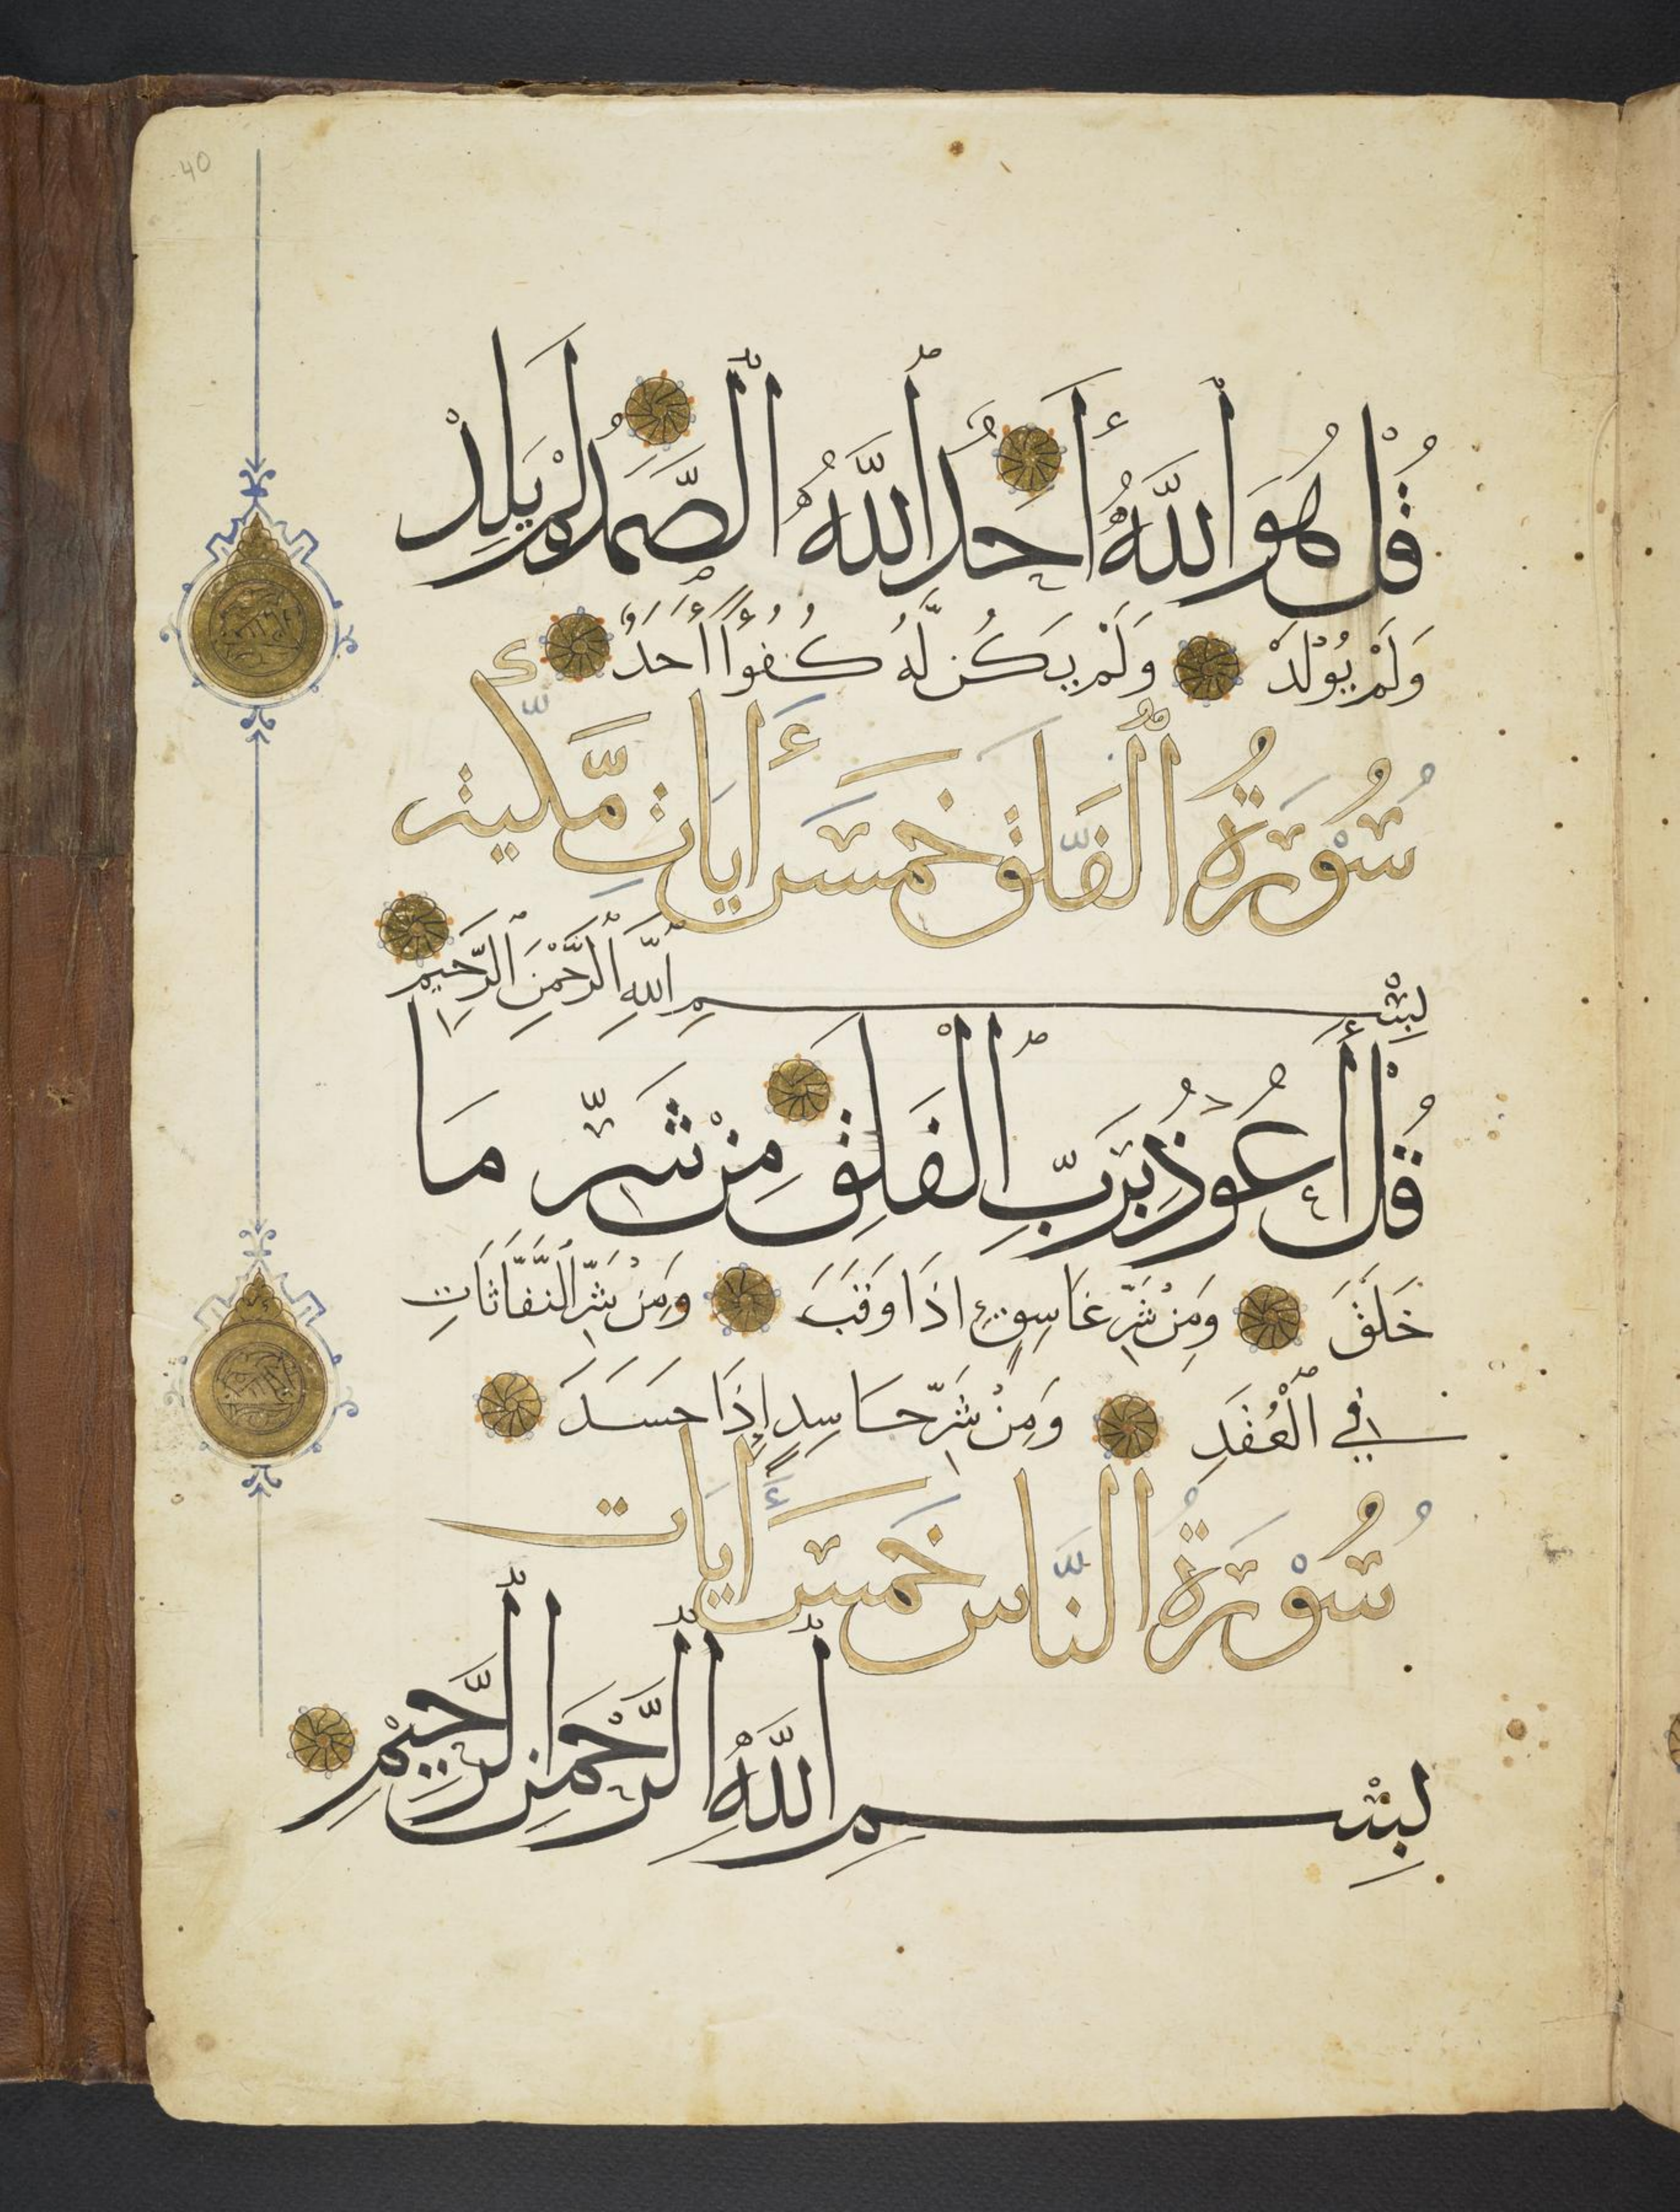 40
قُلْ هُوَ ٱللَّهُ أَحَدٌ ٱللَّهُ ٱلصَّمَدُ لَمْ يَلِدْ
وَلَمْ يُوْلَدْ وَلَمْ يَكُن لَّهُ كُفُوًا أَحَدٌ
سُوْرَةُ ٱلْفَلَق خَمْسَ أَيَاتٍ مَّكِّيَّة
بِسْمِ ٱللَّهِ ٱلرَّحْمٰنِ ٱلرَّحِيمِ
قُلْ أَعُوذُ بِرَبِّ ٱلْفَلَقِ مِنْ شَرِّ مَا
خَلَقَ وَمِنْ شَرِّ غَاسِقٍ اذَا وَقَبَ وَمِنْ شَرِّ ٱلنَّفَّاثَاتِ
فِي ٱلْعُقَدِ وَمِنْ شَرِّ حَاسِدٍ إِذَا حَسَدَ
سُوْرَةُ النَّاس خَمْسَ أَيَات
بِسْمِ ٱللَّهِ ٱلرَّحْمٰنِ ٱلرَّحِيْمِ